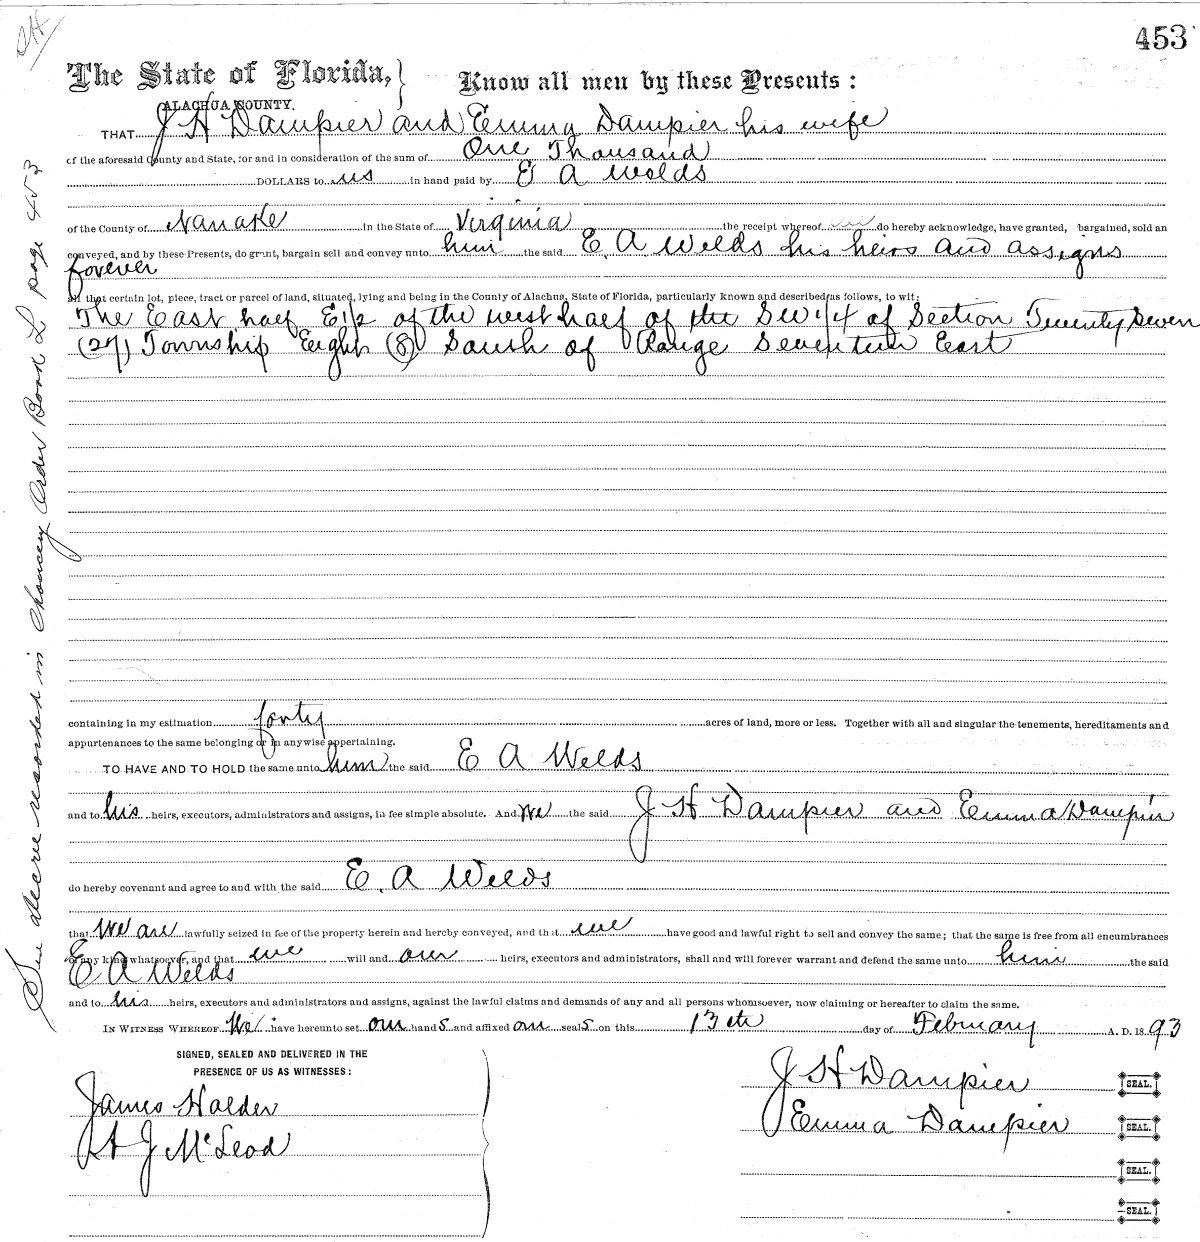 453
The State of Florida,
ALACHUA COUNTY.
Know all men by these Presents:
THAT J H Dampier and Emma Dampier his wife
of the aforesaid County and State, for and in consideration of the sum of One Thousand
DOLLARS to us in hand paid by E A Welds
of the County of Nanake in the State of Virginia the receipt whereof do hereby acknowledge, have granted, bargained, sold an
conveyed, and by these Presents, do grant, bargain sell and convey unto him the said E. A Welds his heirs and assigns
forever
all that certain lot, piece, tract or parcel of land, situated, lying and being in the County of Alachua, State of Florida, particularly known and described as follows, to wit:
The East half E1/2 of the west half of the SW 1/4 of Section Twenty Seven
(27) Township Eight (8) South of Range Seventeen East
containing in my estimation forty acres of land, more or less. Together with all and singular the tenements, hereditaments and
appurtenances to the same belonging or in anywise appertaining.
TO HAVE AND TO HOLD the same unto him the said E A Welds
and to his heirs, executors, administrators and assigns, in fee simple absolute. And we the said J H Dampier and Emma Dampier
do hereby covenant and agree to and with the said E. A Welds
that we are lawfully seized in fee of the property herein and hereby conveyed, and that we have good and lawful right to sell and convey the same; that the same is free from all encumbrances
of any kind whatsoever, and that we will and our heirs, executors, administrators, shall and will forever warrant and defend the same unto him the said
E A Welds
and to his heirs, executors and administrators and assigns, against the lawful claims and demands of any and all persons whomsoever, now claiming or hereafter to claim the same.
IN WITNESS WHEREOF We have hereunto set our hands and affixed our seals on this 13th day of February A. D. 1893
SIGNED, SEALED AND DELIVERED IN THE
PRESENCE OF US AS WITNESSES:
James Halder
H J McLeod
J H Dampier SEAL.
Emma Dampier SEAL.
SEAL.
SEAL.
See decree recorded in Chancery Order Book L page 453